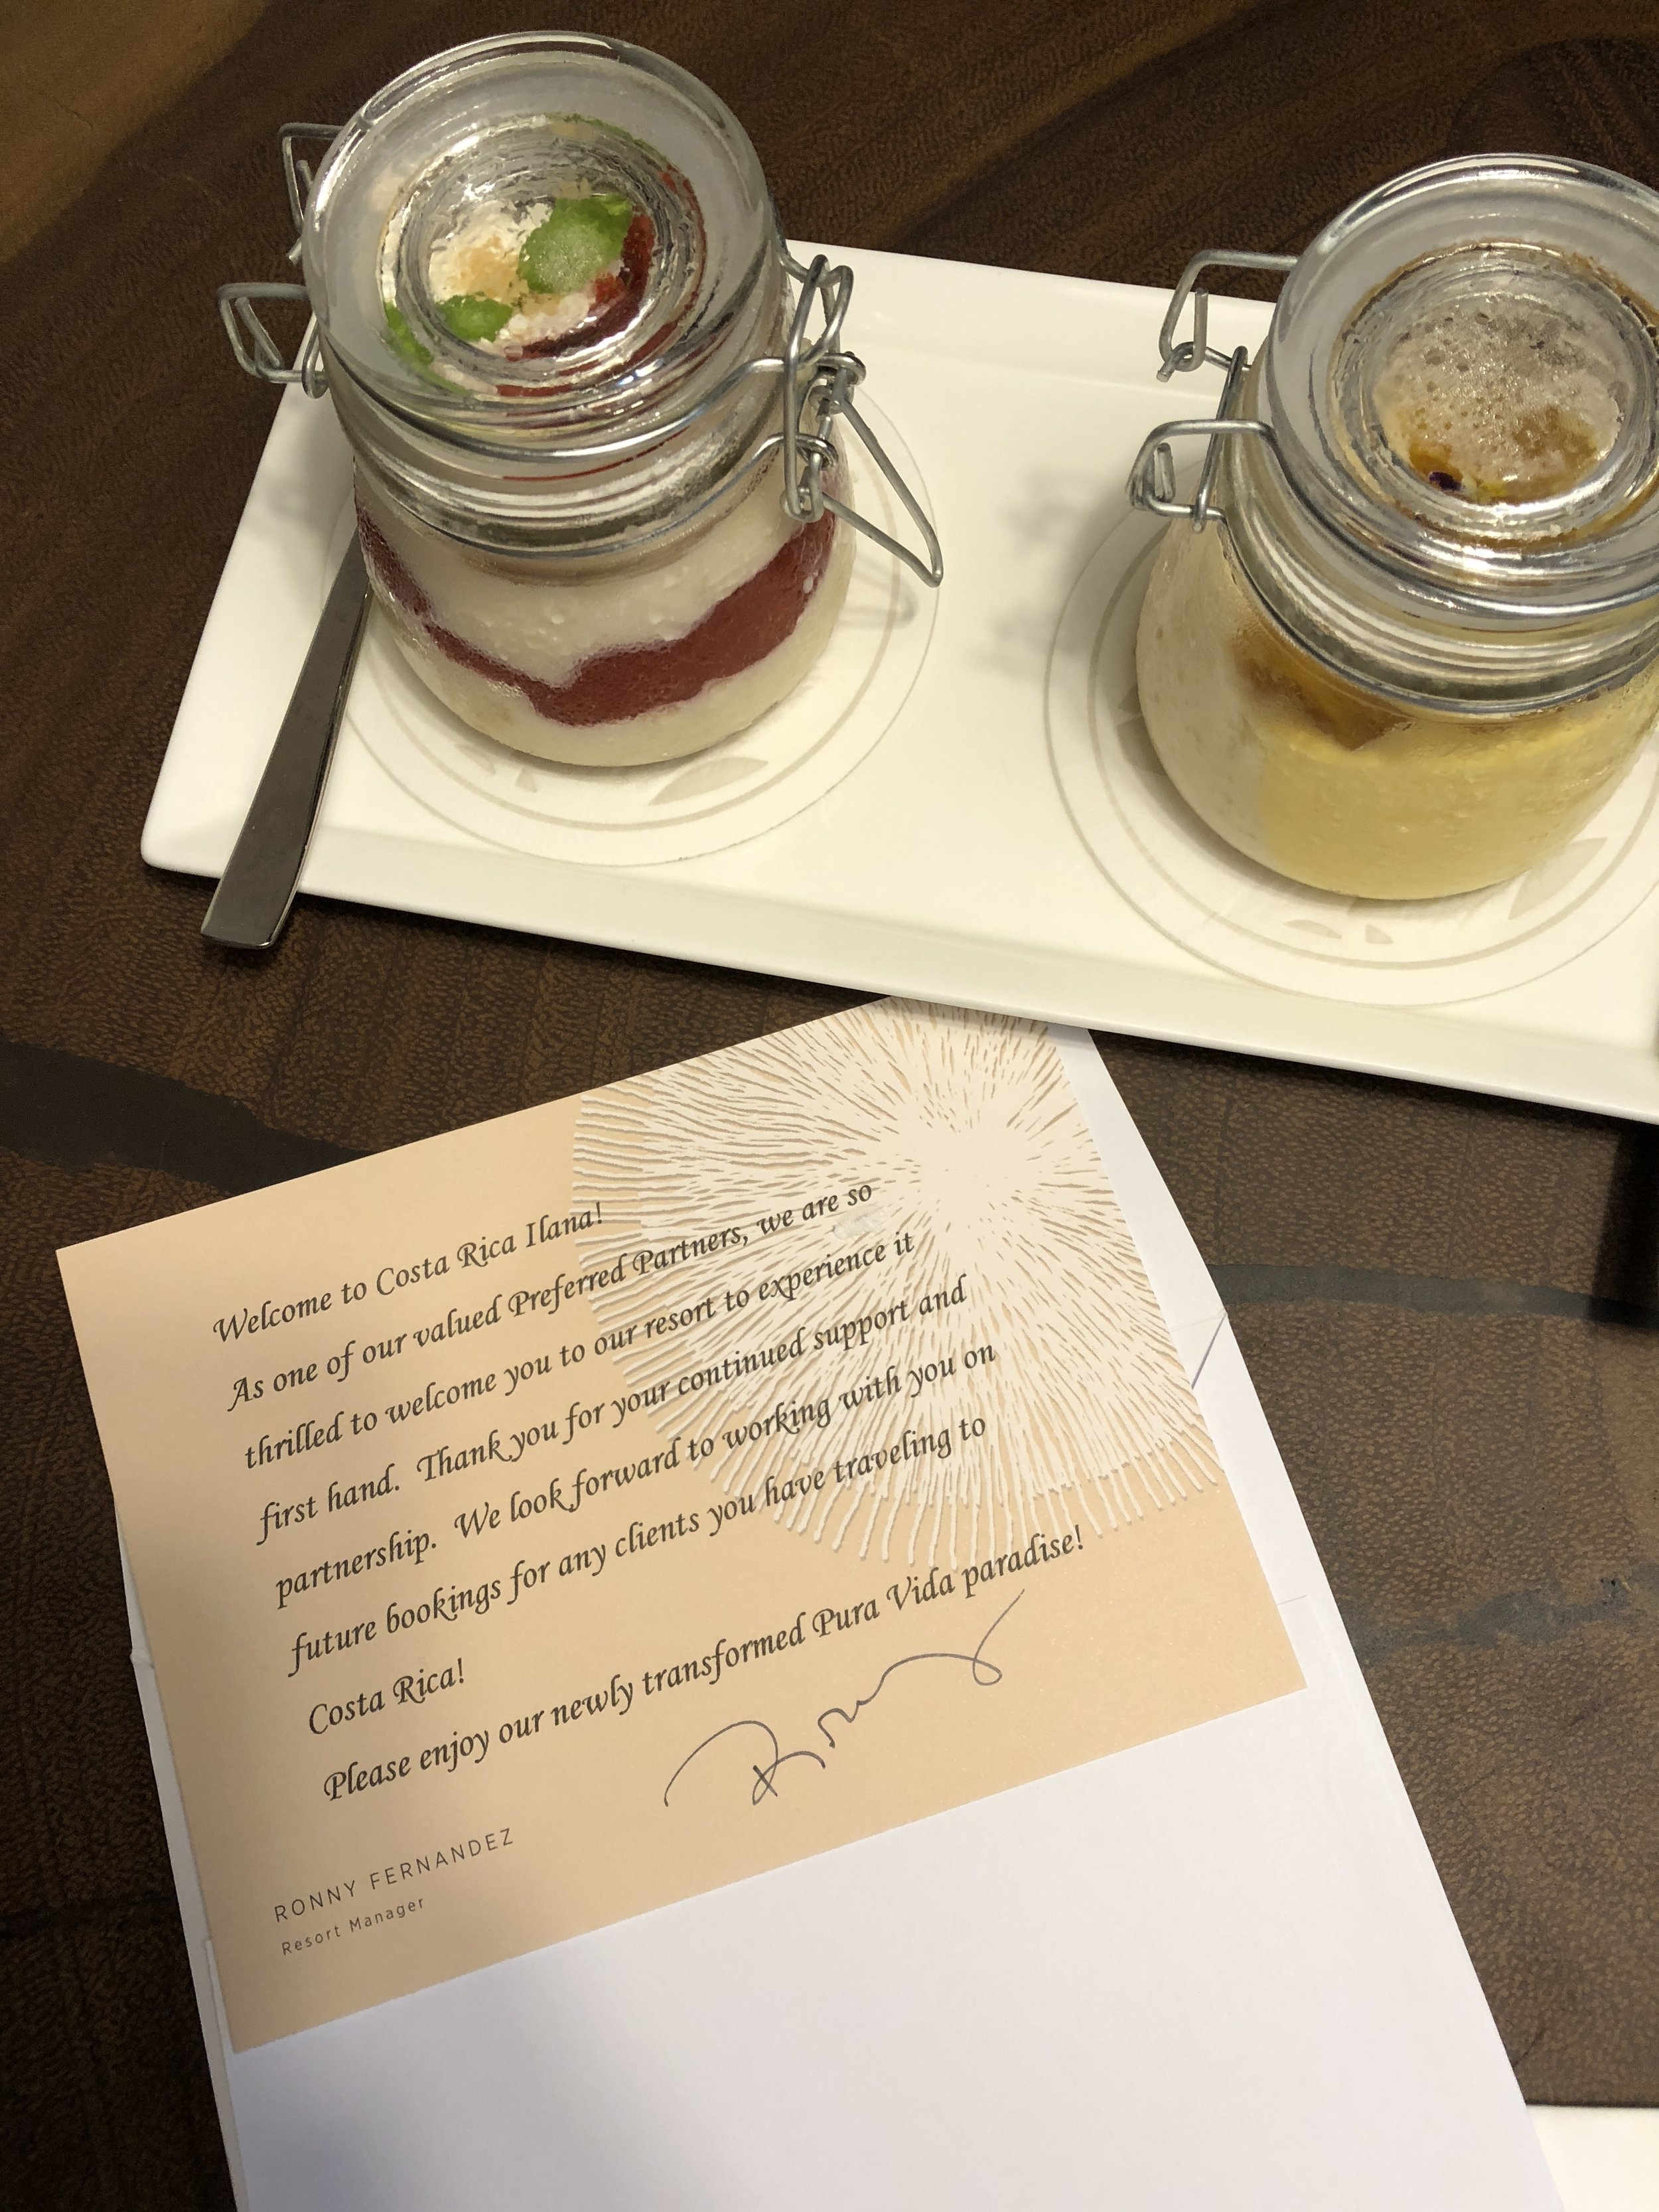 Welcome to Costa Rica Ilana!
As one of our valued Preferred Partners, we are so
thrilled to welcome you to our resort to experience it
first hand. Thank you for your continued support and
partnership. We look forward to working with you on
future bookings for any clients you have traveling to
Costa Rica!
Please enjoy our newly transformed Pura Vida paradise!
Ronny
RONNY FERNANDEZ
Resort Manager